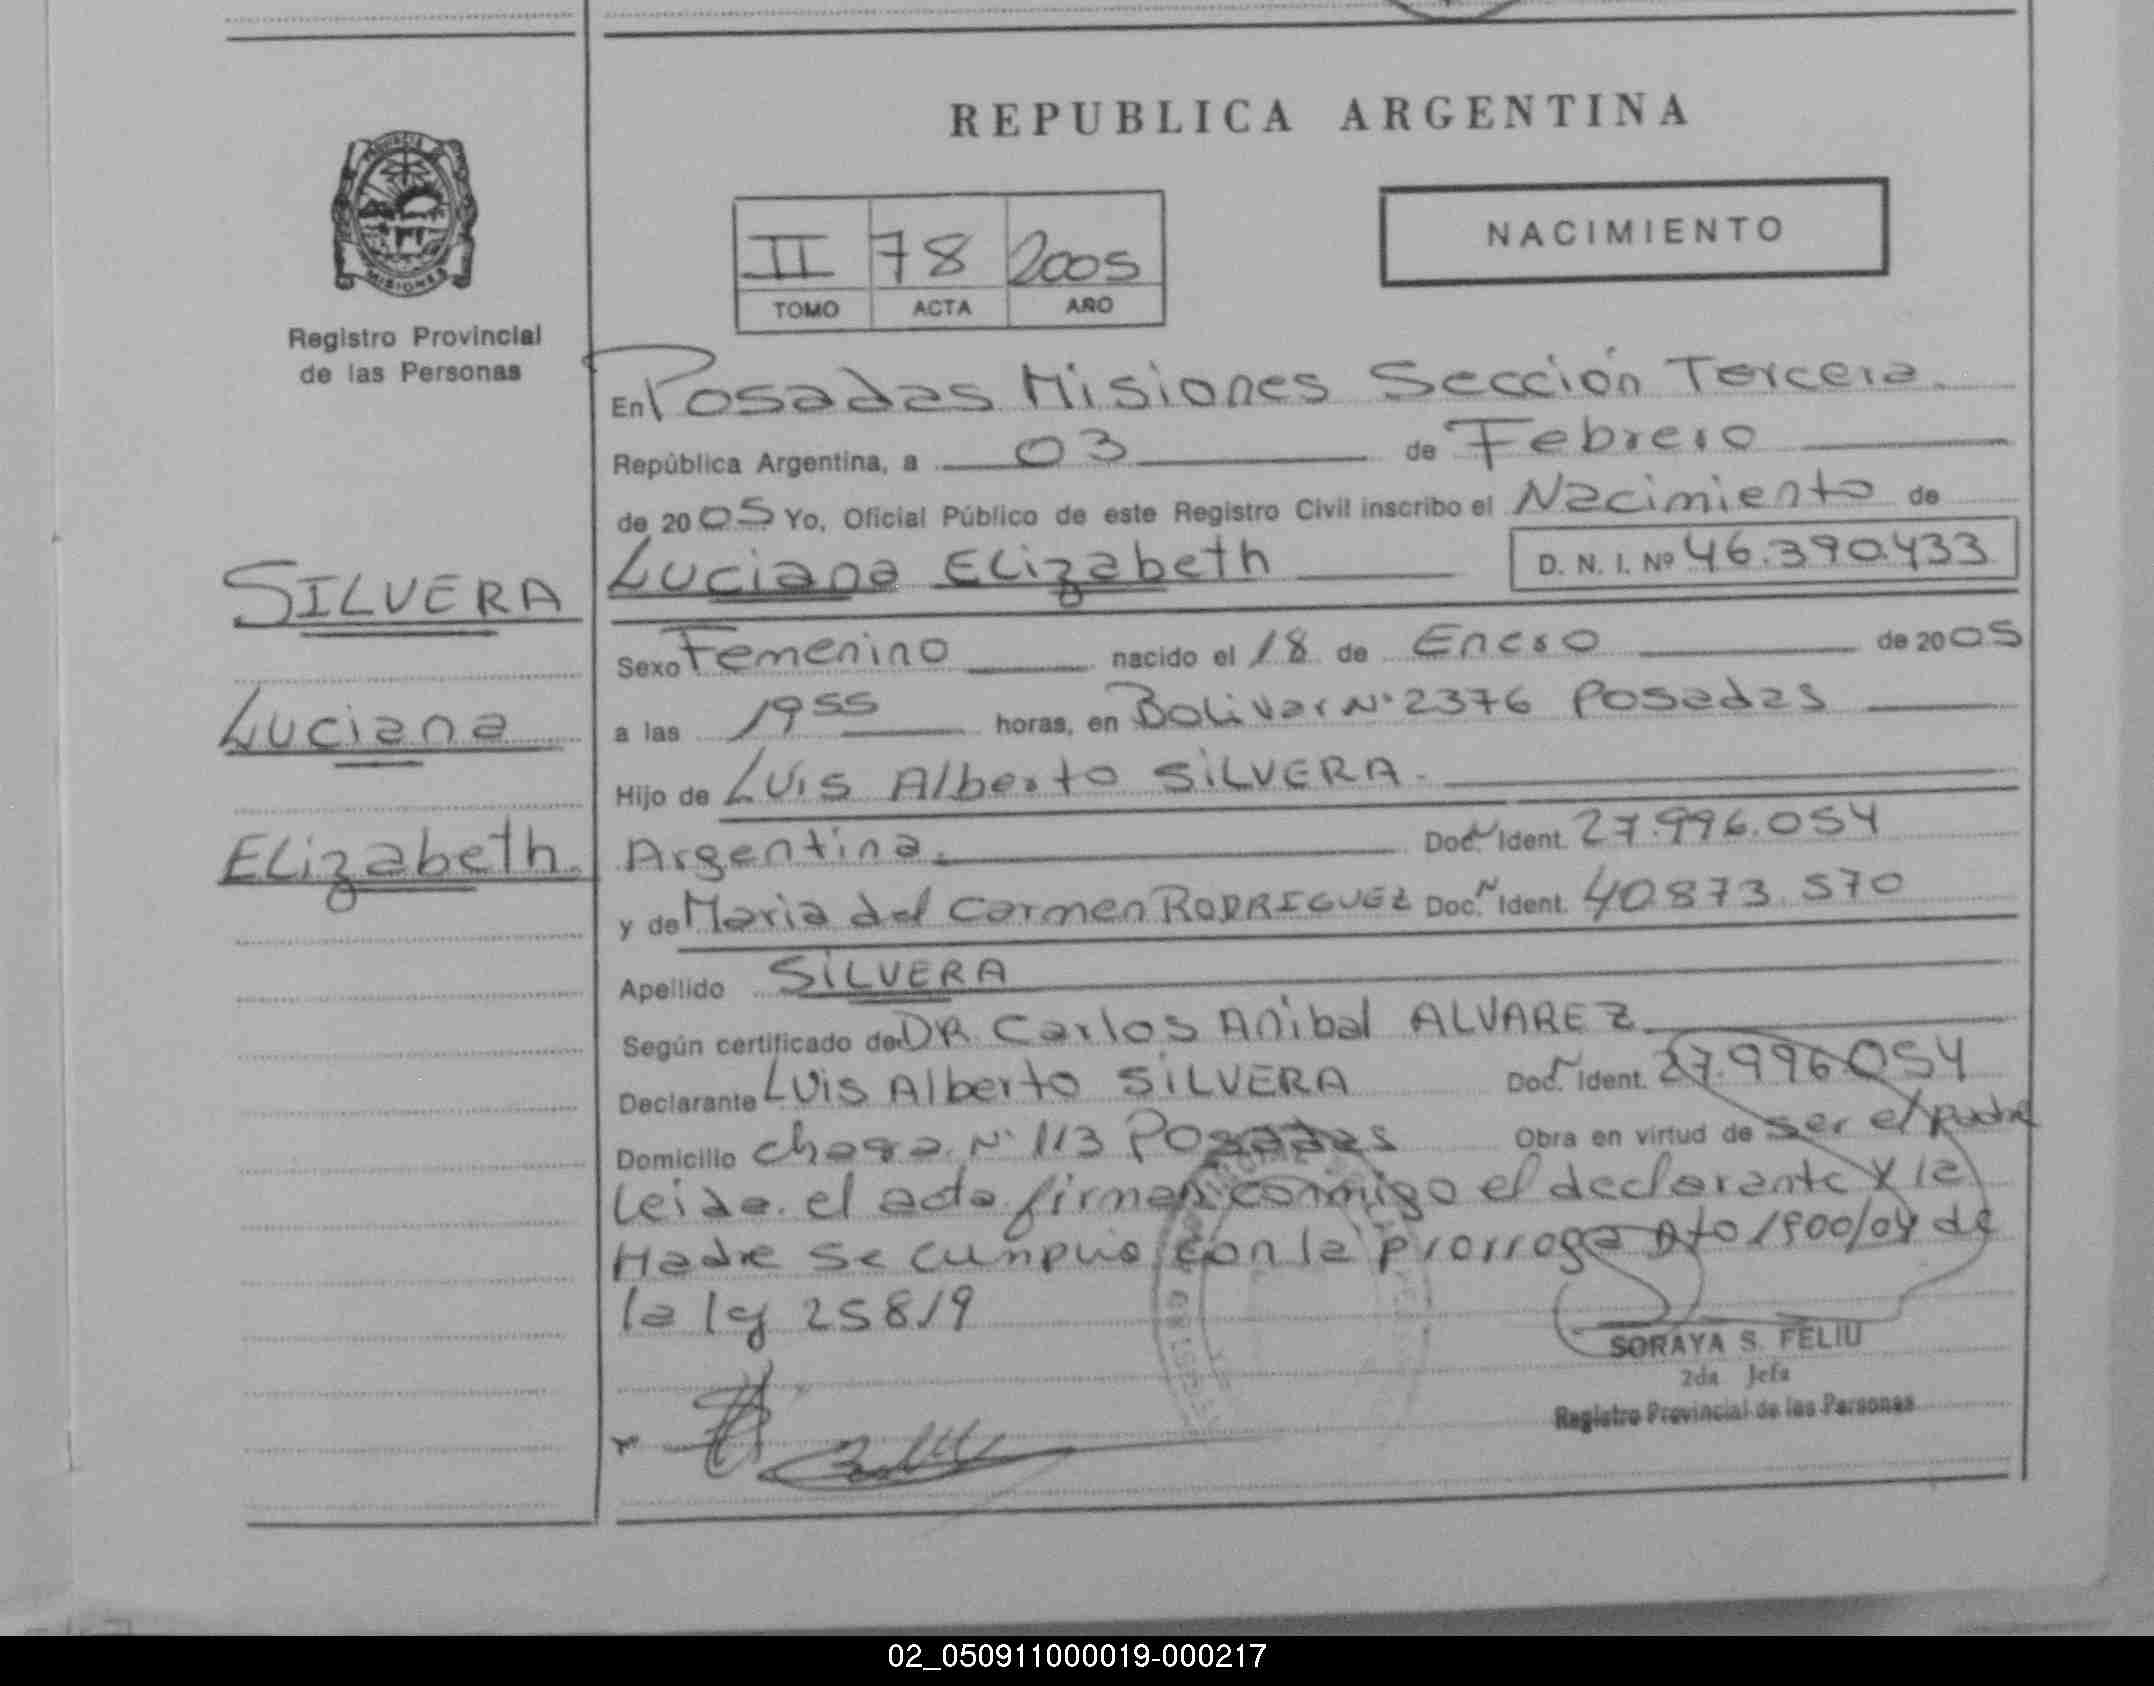 REPUBLICA ARGENTINA
PROVINCIA DE
MISIONES
Registro Provincial
de las Personas
II 78 2005
TOMO ACTA AÑO
NACIMIENTO
En Posadas Misiones Sección Tercera
República Argentina, a 03 de Febrero
de 2005 Yo, Oficial Público de este Registro Civil inscribo el Nacimiento de
Luciana Elizabeth D. N. I. Nº 46.390.433
SILVERA
Luciana
Elizabeth.
Sexo Femenino nacido el 18 de Enero de 2005
a las 19 55 horas, en Bolivar Nº 2376 Posadas
Hijo de Luis Alberto SILVERA.
Argentina. Doc. N Ident. 27.996.054
y de Maria del Carmen RODRIGUEZ Doc. N Ident. 40.873.570
Apellido SILVERA
Según certificado de DR. Carlos Anibal ALVAREZ
Declarante Luis Alberto SILVERA Doc. N Ident. 27.996.054
Domicilio chacra Nº 113 Posadas Obra en virtud de ser el padre
Leida el acta firman conmigo el declarante y la
Madre se cumplio con la prorroga Dto 1900/04 de
la ley 25819
SORAYA S. FELIU
2da Jefa
Registro Provincial de las Personas
02_050911000019-000217